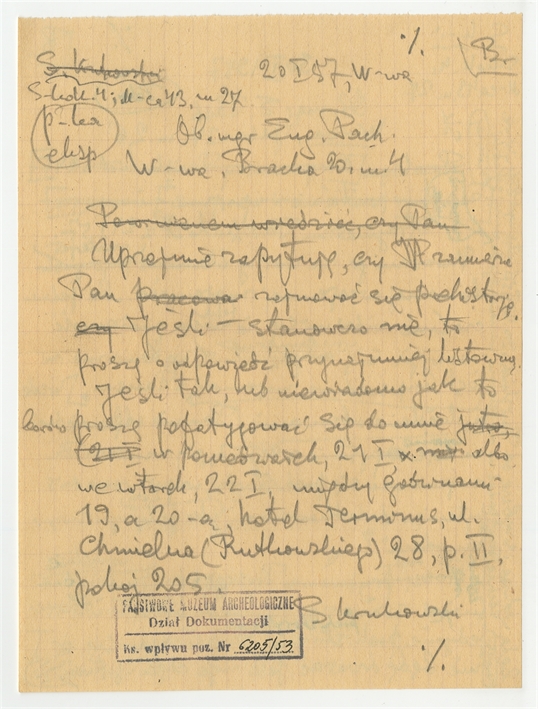 ·/.
Br
S. Krukowski
20 I 57, W-wa
S-kolt. 4; M-ca 43, m 27
p-ka
eksp
Ob. mgr Eug. Pach.
W-wa, Bracka 20, m. 4
Powinienem wiedzieć, czy Pan
Uprzejmie zapytuję, czy zamierza
Pan pracować zajmować się prehistorją.
czy Jeśli — stanowczo nie, to
proszę o odpowiedź przynajmniej listowną.
Jeśli tak, lub niewiadomo jak to
bardzo proszę pofatygować się do mnie jutro,
(21 I w poniedziałek, 21 I, albo
we wtorek, 22 I, między godzinami
19, a 20-ą, hotel Terminus, ul.
Chmielna (Rutkowskiego) 28, p. II,
pokój 205.
S Krukowski
PAŃSTWOWE MUZEUM ARCHEOLOGICZNE
Dział Dokumentacji
Ks. wpływu poz. Nr 6205/53
·/.